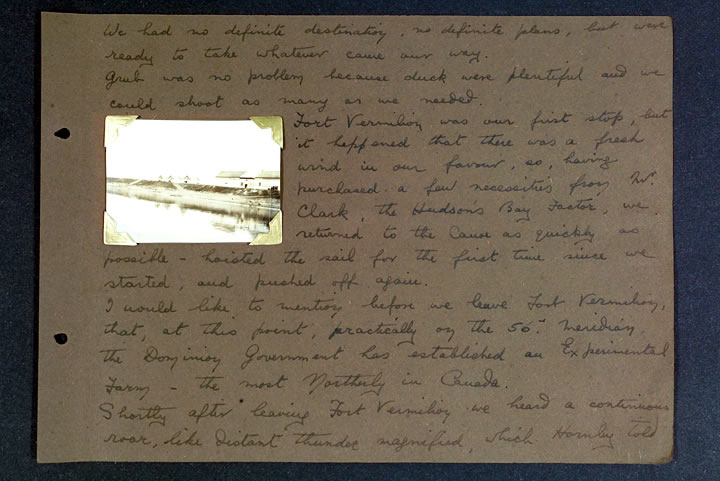 We had no definite destination, no definite plans, but were
ready to take whatever came our way.
Grub was no problem because duck were plentiful and we
could shoot as many as we needed.
Fort Vermilion was our first stop, but
it happened that there was a fresh
wind in our favour, so, having
purchased a few necessities from Mr.
Clark, the Hudson's Bay Factor, we
returned to the Canoe as quickly as
possible - hoisted the sail for the first time since we
started, and pushed off again.
I would like to mention before we leave Fort Vermilion,
that, at this point, practically on the 56th. Meridian
the Dominion Government has established an Experimental
Farm - the most Northerly in Canada.
Shortly after leaving Fort Vermilion we heard a continuous
roar, like distant thunder magnified, which Hornby told